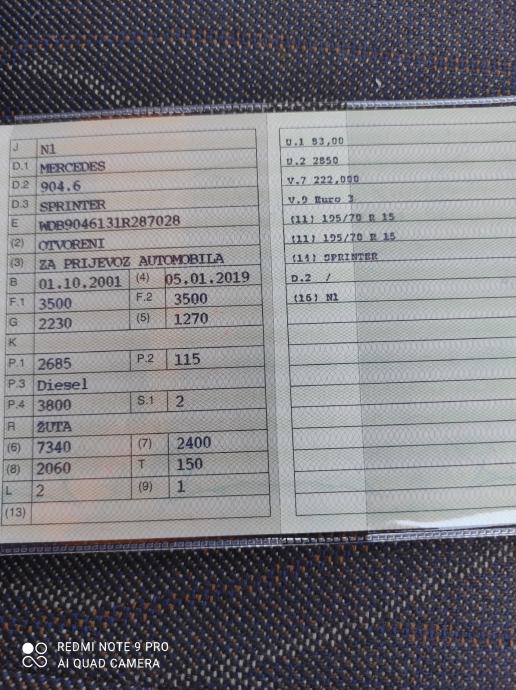 J N1
D.1 MERCEDES
D.2 904.6
D.3 SPRINTER
E WDB9046131R287028
(2) OTVORENI
(3) ZA PRIJEVOZ AUTOMOBILA
B 01.10.2001 (4) 05.01.2019
F.1 3500 F.2 3500
G 2230 (5) 1270
K
P.1 2685 P.2 115
P.3 Diesel
P.4 3800 S.1 2
R ŽUTA
(6) 7340 (7) 2400
(8) 2060 T 150
L 2 (9) 1
(13)
U.1 83,00
U.2 2850
V.7 222,000
V.9 Euro 3
(11) 195/70 R 15
(11) 195/70 R 15
(14) SPRINTER
D.2 /
(16) N1
REDMI NOTE 9 PRO
AI QUAD CAMERA